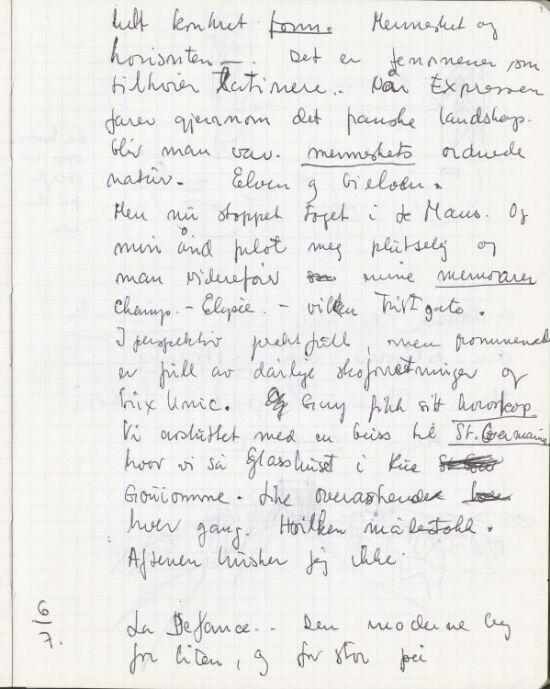 helt konkret form. Mennesket og
horisonten –. Det er fenomener, som
tilhører latinere.. Når Expressen
farer gjennom det franske landskap.
blir man var. menneskets ordnede
natur. Elven og bieloen.
Men nu stoppet toget i Le Mans. Og
min ånd forlot meg plutselig og
man viderefører mine memoarer
Champ. - Elysée. - vilken trist gate.
I perspektiv praktfull, men promenade
er full av dårlige skoforretninger og
Prix Unic. Og Guy fikk sitt horoskop
Vi avsluttet med en buss til St. Germain
hvor vi så Glasshuset i Rue
Gouiomme. Like overaskende
hver gang. Hvilken målestokk.
Aftenen husker jeg ikke.
6/7.
La Defance.. Den moderne by
for liten, og for stor på